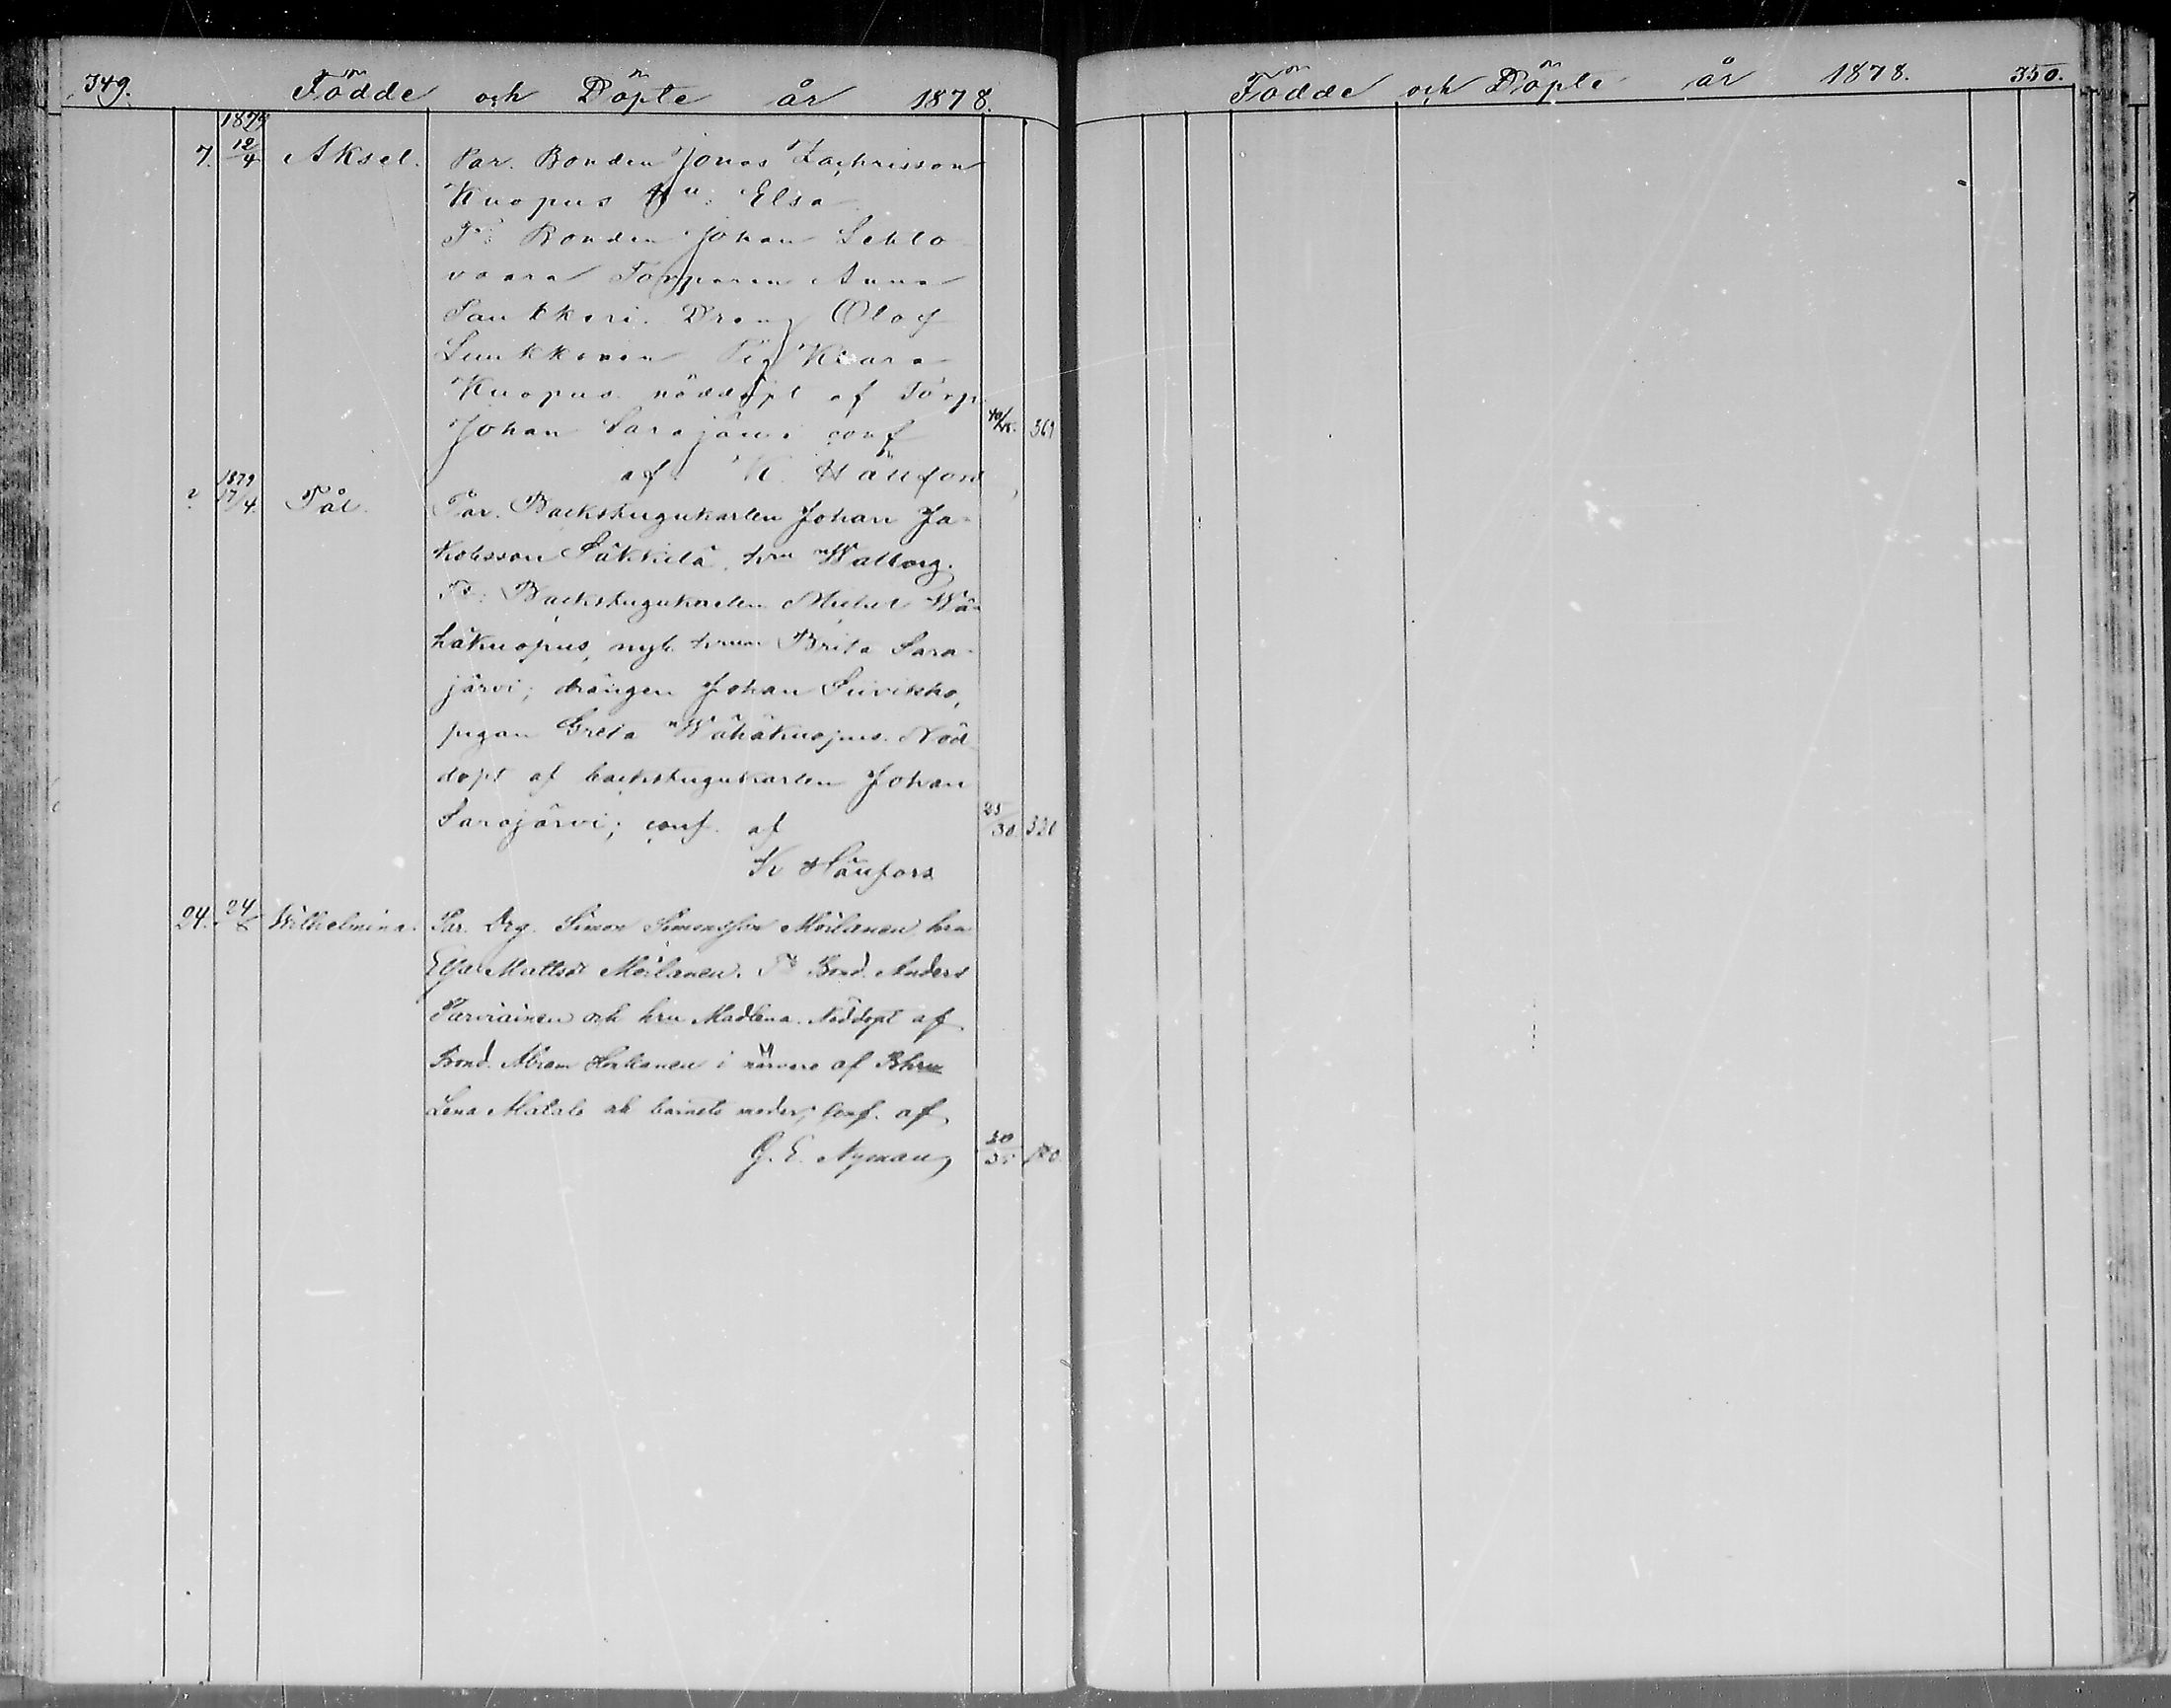 349. Födde och Döpte år 1878.
1879
7. 12/4 Aksel. Par. Bonden Jonas Zachrisson
Kuopus Hu: Elsa
Fr: Bonden Johan Lehto
vaara Torparen Anna
Saukkori. Dräng Olof
Kuopus nöddöpt af Torp.
Johan Sarajärvi conf 40/ 369
af K. Hällfors
1879
2. 17/4. Pål. Par. Backstugukarlen Johan Ja-
kobsson Säkkilä, hru Walborg.
Fr: Backstugukarlen Michel Wä-
häkuopus, nyb. hrun Brita Sara-
järvi; drängen Johan Siivikko,
pigan Greta Wähäkuopus. Nöd
döpt af backstugukarlen Johan
Sarajärvi; conf. af 25/30 320
K Hällfors
24. 24/ Wilhelmina. Par. Drg. Simon Simonsson Moilanen hru
Elsa Mattsdr Moilanen. Fr Bond. Anders
Parviainen och hru Madlena. Nöddöpt af
Bond. Abram i närvaro af Bhru
Lena Matala och barnets moder; Conf. af
G. E. Nyman 30/35 180.
Födde och Döpte år 1878. 350.